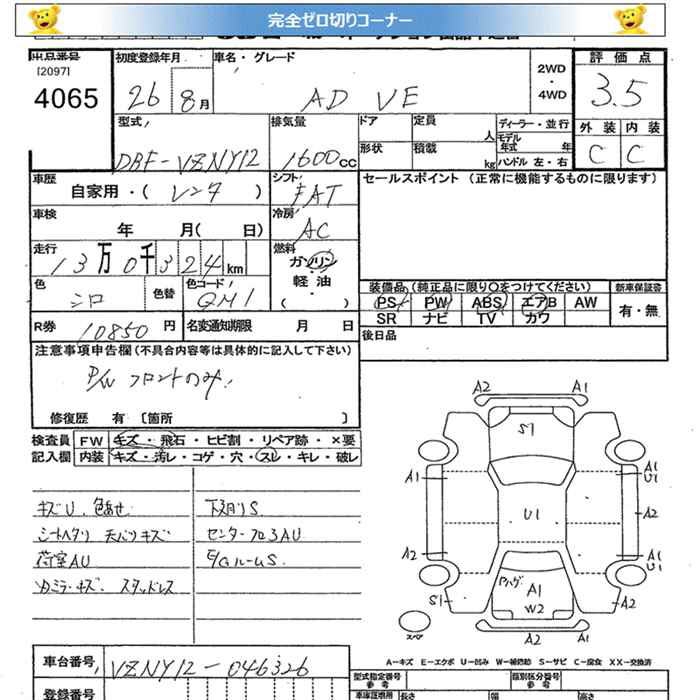 完全ゼロ切りコーナー
出品番号
[2097]
4065
初度登録年月
26 8月
車名・グレード
AD VE
2WD
・
4WD
評価点
3.5
外装 内装
C C
型式
DBF-VZNY12
排気量
1600cc
ドア 定員 人
形状 積載 kg
ディーラー・並行
モデル年式 年
ハンドル 左・右
車歴
自家用・( レンタ )
シフト
FAT
セールスポイント (正常に機能するものに限ります)
車検
年 月( 日)
冷房
AC
走行
13万0千324km
燃料
ガソリン
・
軽油
・
( )
色
シロ
色替
色コード
QM1
装備品(純正品に限り○をつけてください) 新車保証書
PS PW ABS エアB AW 有・無
SR ナビ TV カワ
R券 10850円 名変通知期限 月 日
後日品
注意事項申告欄(不具合内容等は具体的に記入して下さい)
P/W フロントのみ
修復歴 有〔箇所 〕
検査員 FW キズ・飛石・ヒビ割・リペア跡・×要
記入欄 内装 キズ・汚レ・コゲ・穴・スレ・キレ・破レ
キズU 色あせ
シートヘタリ 天バリキズ
荷室AU
スタッドレス
下廻りS
センターフロアAU
E/GルームS
A2 A1
S1
A1
A1
U1
U1
A2
A2
A1
U1
パハゲ
A1
W2
S1
A2
スペア
A2 A1
A-キズ E-エクボ U-凹み W-補修跡 S-サビ C-腐食 XX-交換済
車台番号
VZNY12-046326
登録番号
型式指定番号
参考
類別区分番号
参考
車庫証明用 長さ 幅 高さ